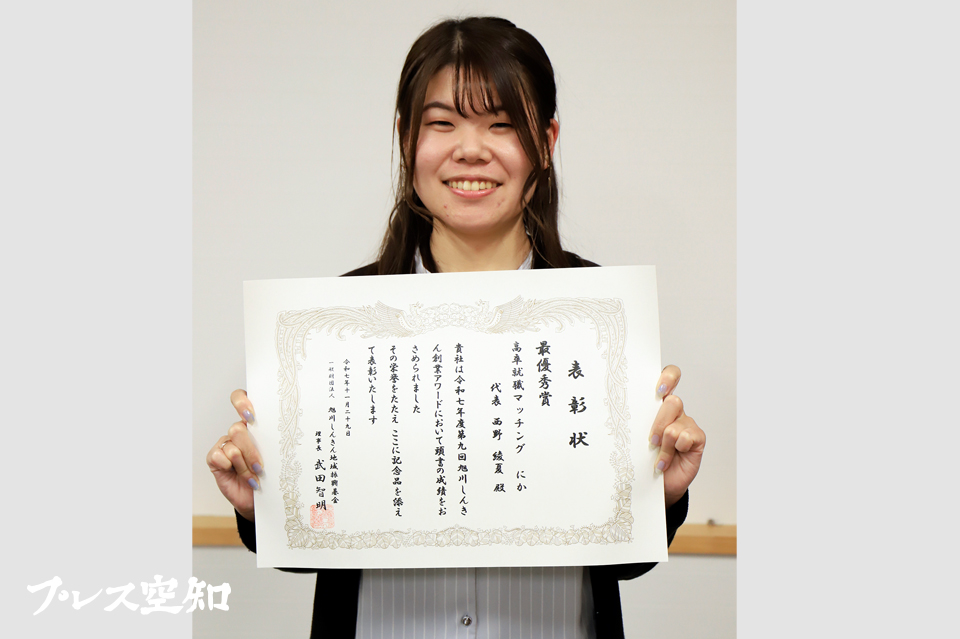 表彰状
最優秀賞
高卒就職マッチング にか
代表 西野 綾夏 殿
貴社は令和七年度第九回旭川しんき
ん創業アワードにおいて頭書の成績をお
さめられました
その栄誉をたたえ ここに記念品を添え
て表彰いたします
令和七年十一月二十九日
一般財団法人 旭川しんきん地域振興基金
理事長 武田智明
プレス空知